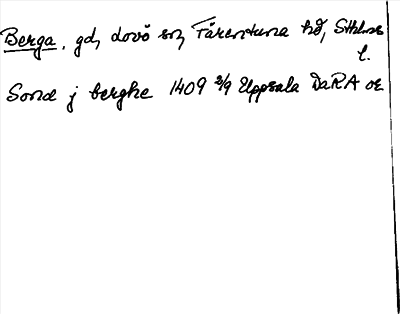 Berga, gd, Lovö sn, Färentuna hd, Sthlms
l.
Sone j berghe 1409 3/9 Uppsala DaRA or